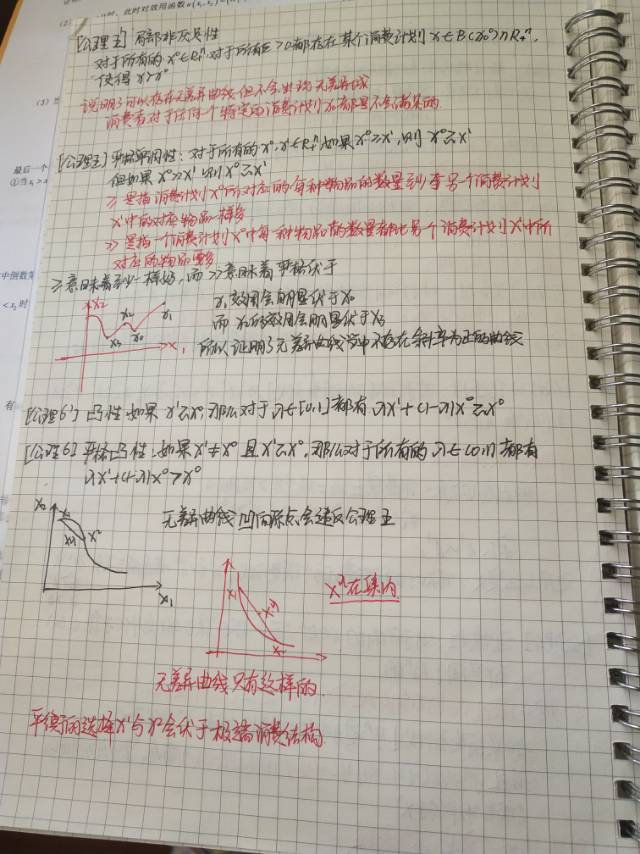 时, 此时对效用函数
(2)
[公理王] 局部非灰是性
对于所有的 x⁰∈R₊ⁿ, 对于所有ε>0都存在某个消费计划 x∈B(x⁰)∩R₊ⁿ,
使得 x>x⁰
说明了可以存在无差异曲线但不会出现无差异域
消费者对于任何一个特定的消费计划x⁰都是不会满足的
[公理王] 严格单调性: 对于所有的 x⁰, x¹∈R₊ⁿ, 如果 x⁰≥x¹, 则 x⁰≿x¹
但如果 x⁰≫x¹ 则 x⁰≿x¹
≥是指消费计划x⁰所对应的每种物品的数量至少李另一个消费计划
x¹中的对应物品一样多
≫是指一个消费计划x⁰中每一种物品的数量都比另一个消费计划x¹中所
对应的物品更多
≥意味着至少一样好, 而≫意味着严格优于
x₁效用会明显优于x₀
而x₂的效用会明显优于x₃
所以证明了无差异曲线当中不存在斜率为正的曲线
x₂
x₂
x₁
x₃
x₀
x₁
[公理6'] 凸性: 如果 x¹≿x⁰, 那么对于λ∈[0,1]都有λx¹+(1-λ)x⁰≿x⁰
[公理6] 严格凸性: 如果x¹≠x⁰且x¹≿x⁰, 那么对于所有的λ∈(0,1)都有
λx¹+(1-λ)x⁰>x⁰
无差异曲线凹向原点会违反公理王
x₂
x₁
x⁰
x₁
x¹
x⁰
xⁿ在集内
无差异曲线只有这样的
平衡的选择x¹与x⁰会优于极端消费结构
最后一个